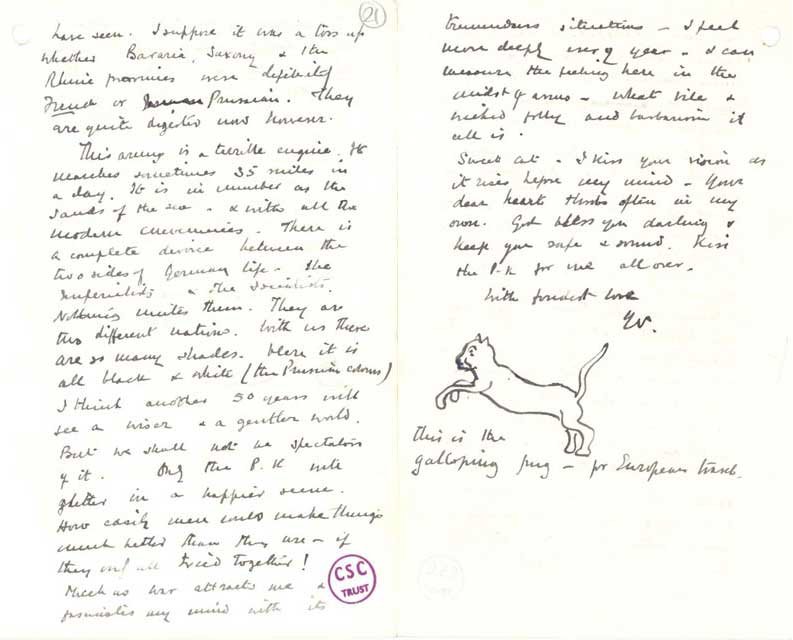 21
have seen. I suppose it was a toss up
whether Bavaria, Saxony & the
Rhine provinces were definitely
French or Prussian. They
are quite digested now however.
This army is a terrible engine. It
marches sometimes 35 miles in
a day. It is in number as the
sands of the sea - & with all the
modern conveniences. There is
a complete divorce between the
two sides of German life - the
Imperialists & the Socialists.
Nothing unites them. They are
two different nations. With us there
are so many shades. Here it is
all black & white (the Prussian colours)
I think another 50 years will
see a wiser & a gentler world.
But we shall not be spectators
of it. Only the P.K will
glitter in a happier scene.
How easily men could make things
much better than they are - if
they only all tried together!
Much as war attracts me &
fascinates my mind with its
CSC
TRUST
tremendous situations - I feel
more deeply every year - & can
measure the feeling here in the
midst of arms - what vile &
wicked folly and barbarism it
all is.
Sweet cat - I kiss your vision as
it rises before my mind - Your
dear heart throbs often in my
own. God bless you darling &
keep you safe & sound. Kiss
the P.K for me all over.
With fondest love
W.
This is the
galloping pug - for European travel.